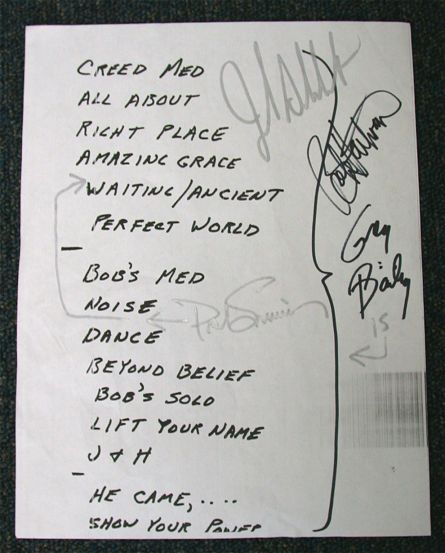 CREED MED
ALL ABOUT
RIGHT PLACE
AMAZING GRACE
WAITING/ANCIENT
PERFECT WORLD
BOB'S MED
NOISE
DANCE
BEYOND BELIEF
BOB'S SOLO
LIFT YOUR NAME
J & H
HE CAME,....
SHOW YOUR POWER
Greg
Bailey
IS